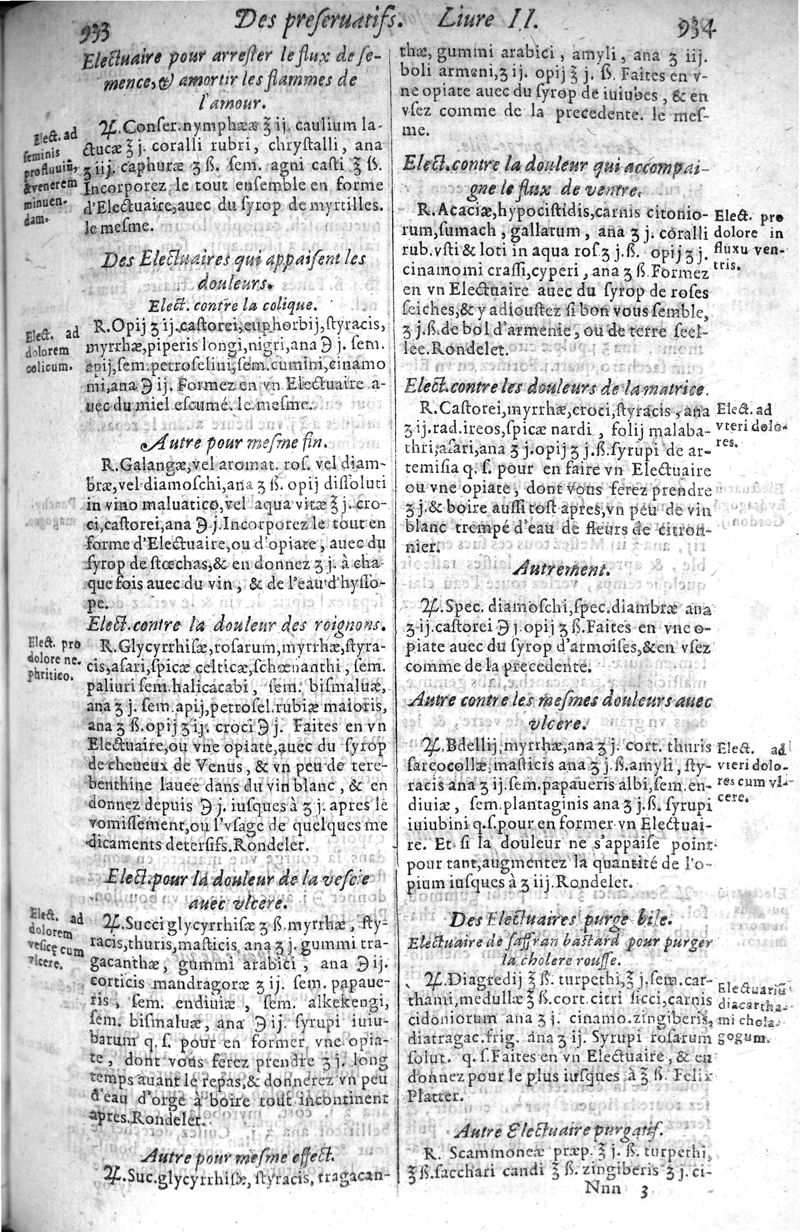 933
Des preseruatifs. Liure II.
934
Electuaire pour arrester le flux de se-
mence, & amortir les flammes de
l'amour.
Elect. ad
seminis
profluuiũ,
& venerem
minuen-
dam.
♃. Conser. nymphææ ℥ ij. caulium la-
ctucæ ℥ j. coralli rubri, chrystalli, ana
ʒ iij. caphuræ ʒ ß. sem. agni casti ℥ ß.
Incorporez le tout ensemble en forme
d'Electuaire, auec du syrop de myrtilles.
le mesme.
Des Electuaires qui appaisent les
douleurs.
Elect. contre la colique.
Elect. ad
dolorem
colicum.
R. Opij ʒ ij. castorei, euphorbij, styracis,
myrrhæ, piperis longi, nigri, ana ℈ j. sem.
apij, sem. petroselini, sem. cumini, cinamo
mi, ana ℈ ij. Formez en vn Electuaire a-
uec du miel escumé. le mesme.
Autre pour mesme fin.
R. Galangæ, vel aromat. ros. vel diam-
bræ, vel diamoschi, ana ʒ ß. opij dissoluti
in vino maluatico, vel aqua vitæ ℥ j. cro-
ci, castorei, ana ℈ j. Incorporez le tout en
forme d'Electuaire, ou d'opiate, auec du
syrop de stœchas, & en donnez ʒ j. à cha-
que fois auec du vin, & de l'eau d'hysso-
pe.
Elect. contre la douleur des roignons.
Elect. pro
dolore ne-
phritico.
R. Glycyrrhisæ, rosarum, myrrhæ, styra-
cis, asari, spicæ celticæ, schœnanthi, sem.
paliuri sem. halicacabi, sem. bismaluæ,
ana ʒ j. sem. apij, petrosel. rubiæ maioris,
ana ʒ ß. opij ʒ ij. croci ℈ j. Faites en vn
Electuaire, ou vne opiate, auec du syrop
de cheueux de Venus, & vn peu de tere-
benthine lauee dans du vin blanc, & en
donnez depuis ℈ j. iusques à ʒ j. apres le
vomissement, ou l'vsage de quelques me
dicaments detersifs. Rondelet.
Elect. pour la douleur de la vescie
auec vlcere.
Elect. ad
dolorem
vesicę cum
vlcere.
♃. Succi glycyrrhisæ ℥ ß. myrrhæ, sty-
racis, thuris, masticis, ana ʒ j. gummi tra-
gacanthæ, gummi arabici, ana ℈ ij.
corticis mandragoræ ʒ ij. sem. papaue-
ris, sem. endiuiæ, sem. alkekengi,
sem. bismaluæ, ana ℈ ij. syrupi iuiu-
barum q. s. pour en former vne opia-
te, dont vous ferez prendre ʒ j. long
temps auant le repas, & donnerez vn peu
d'eau d'orge à boire tout incontinent
apres. Rondelet.
Autre pour mesme effect.
♃. Suc. glycyrrhisæ, styracis, tragacan-
thæ, gummi arabici, amyli, ana ʒ iij.
boli armeni, ʒ ij. opij ℥ j. ß. Faites en v-
ne opiate auec du syrop de iuiubes, & en
vsez comme de la precedente. le mes-
me.
Elect. contre la douleur qui accompai-
gne le flux de ventre.
R. Acaciæ, hypocistidis, carnis citonio-
rum, sumach, gallarum, ana ʒ j. coralli
rub. vsti & loti in aqua ros. ʒ j. ß. opij ʒ j.
cinamomi crassi, cyperi, ana ʒ ß. Formez
en vn Electuaire auec du syrop de roses
seiches, & y adioustez si bon vous semble,
ʒ j. ß. de bol d'armenie, ou de terre seel-
lee. Rondelet.
Elect. pro
dolore in
fluxu ven-
tris.
Elect. contre les douleurs de la matrice.
R. Castorei, myrrhæ, croci, styracis, ana
ʒ ij. rad. ireos, spicæ nardi, folij malaba-
thri, asari, ana ʒ j. opij ʒ j. ß. syrupi de ar-
temisia q. s. pour en faire vn Electuaire
ou vne opiate, dont vous ferez prendre
ʒ j. & boire aussi tost apres, vn peu de vin
blanc trempé d'eau de fleurs de citron-
nier.
Elect. ad
vteri dolo-
res.
Autrement.
♃. Spec. diamoschi, spec. diambræ ana
ʒ ij. castorei ℈ j. opij ʒ ß. Faites en vne o-
piate auec du syrop d'armoises, & en vsez
comme de la precedente.
Autre contre les mesmes douleurs auec
vlcere.
♃. Bdellij, myrrhæ, ana ʒ j. cort. thuris
sarcocollæ, masticis ana ʒ j. ß. amyli, sty-
racis ana ʒ ij. sem. papaueris albi, sem. en-
diuiæ, sem. plantaginis ana ʒ j. ß. syrupi
iuiubini q. s. pour en former vn Electuai-
re. Et si la douleur ne s'appaise point
pour tant, augmentez la quantité de l'o-
pium iusques à ʒ iij. Rondelet.
Elect. ad
vteri dolo-
res cum vl-
cere.
Des Electuaires purge bile.
Electuaire de saffran bastard pour purger
la cholere rousse.
♃. Diagredij ℥ ß. turpethi, ℥ j. sem. car-
thami, medullæ ℥ ß. cort. citri sicci, carnis
cidoniorum ana ʒ j. cinamo. zingiberis,
diatragac. frig. ana ʒ ij. Syrupi rosarum
solut. q. s. Faites en vn Electuaire, & en
donnez pour le plus iusques à ℥ ß. Felix
Platter.
Electuariũ
diacartha-
mi chola-
gogum.
Autre Electuaire purgatif.
R. Scammoneæ præp. ℥ j. ß. turpethi,
℥ ß. sacchari candi ℥ ß. zingiberis ʒ j. ci-
Nnn 3